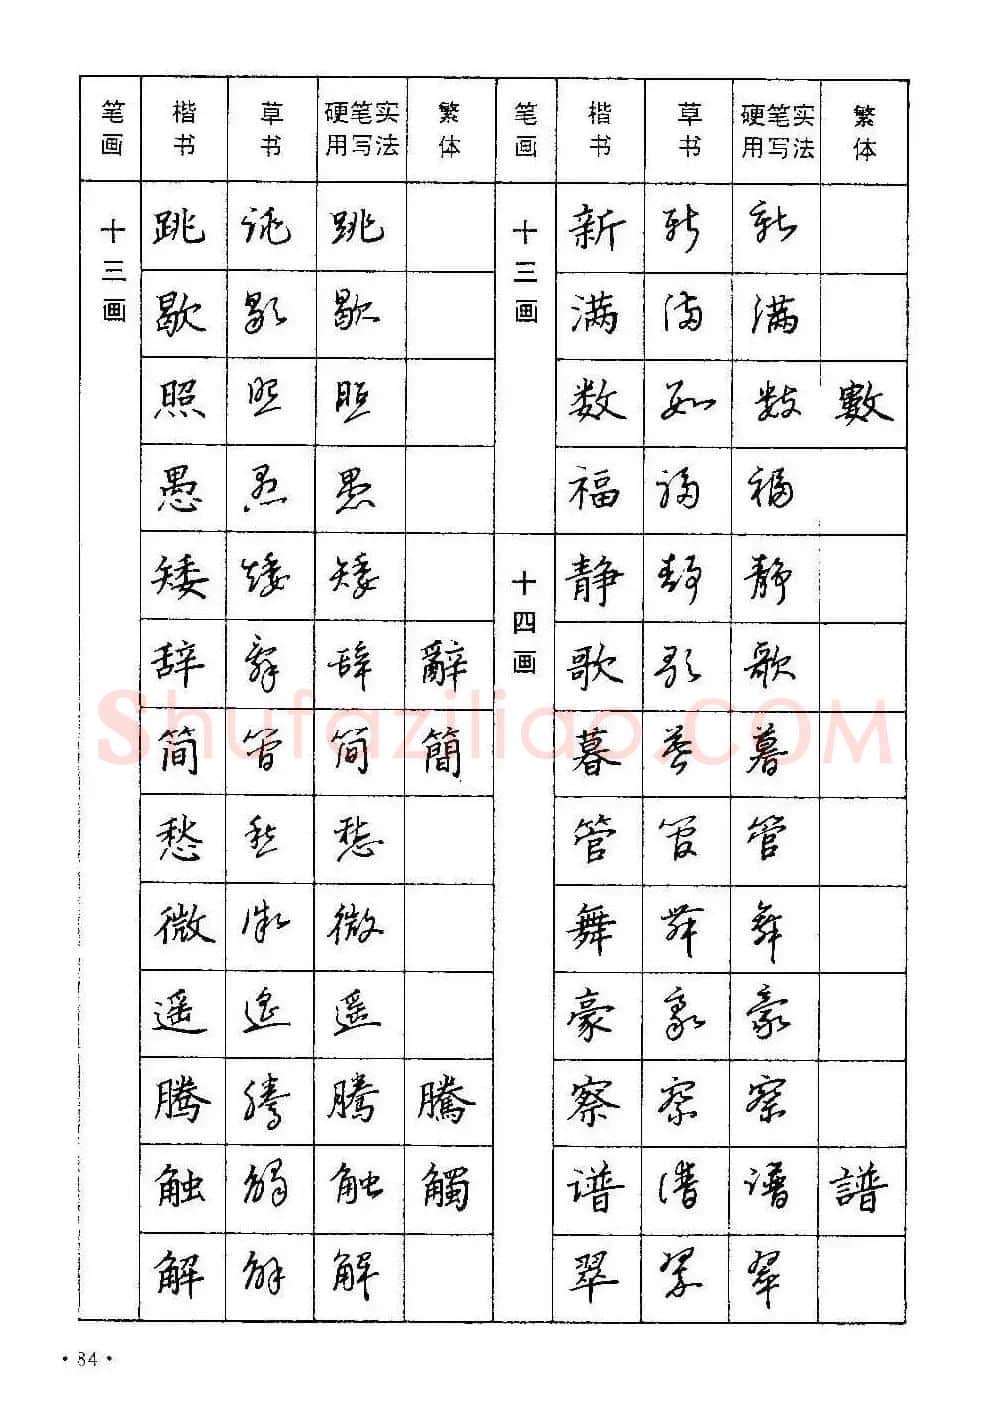 笔画 楷书 草书 硬笔实用写法 繁体 笔画 楷书 草书 硬笔实用写法 繁体
十三画 跳 跳 跳 十三画 新 新 新
歇 歇 歇 满 满 满
照 照 照 数 数 数 數
愚 愚 愚 福 福 福
矮 矮 矮 十四画 静 静 静
辞 辞 辞 辭 歌 歌 歌
简 简 简 簡 暮 暮 暮
愁 愁 愁 管 管 管
微 微 微 舞 舞 舞
遥 遥 遥 豪 豪 豪
腾 腾 腾 騰 察 察 察
触 触 触 觸 谱 谱 谱 譜
解 解 解 翠 翠 翠
Shufaziliao.COM
·84·